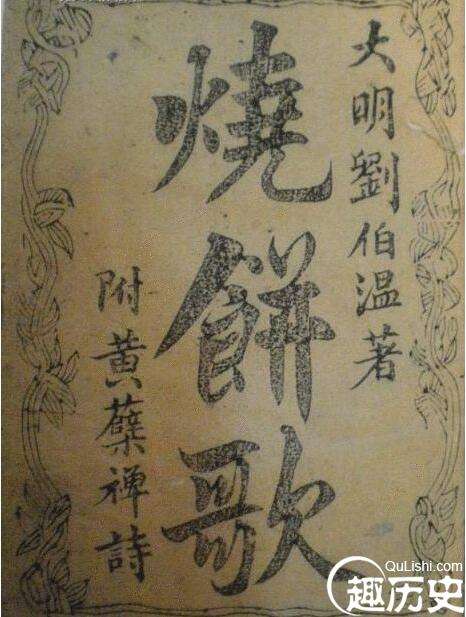 大明劉伯温著
燒餅歌
附黄蘗禅詩
QuLishi.com
趣历史